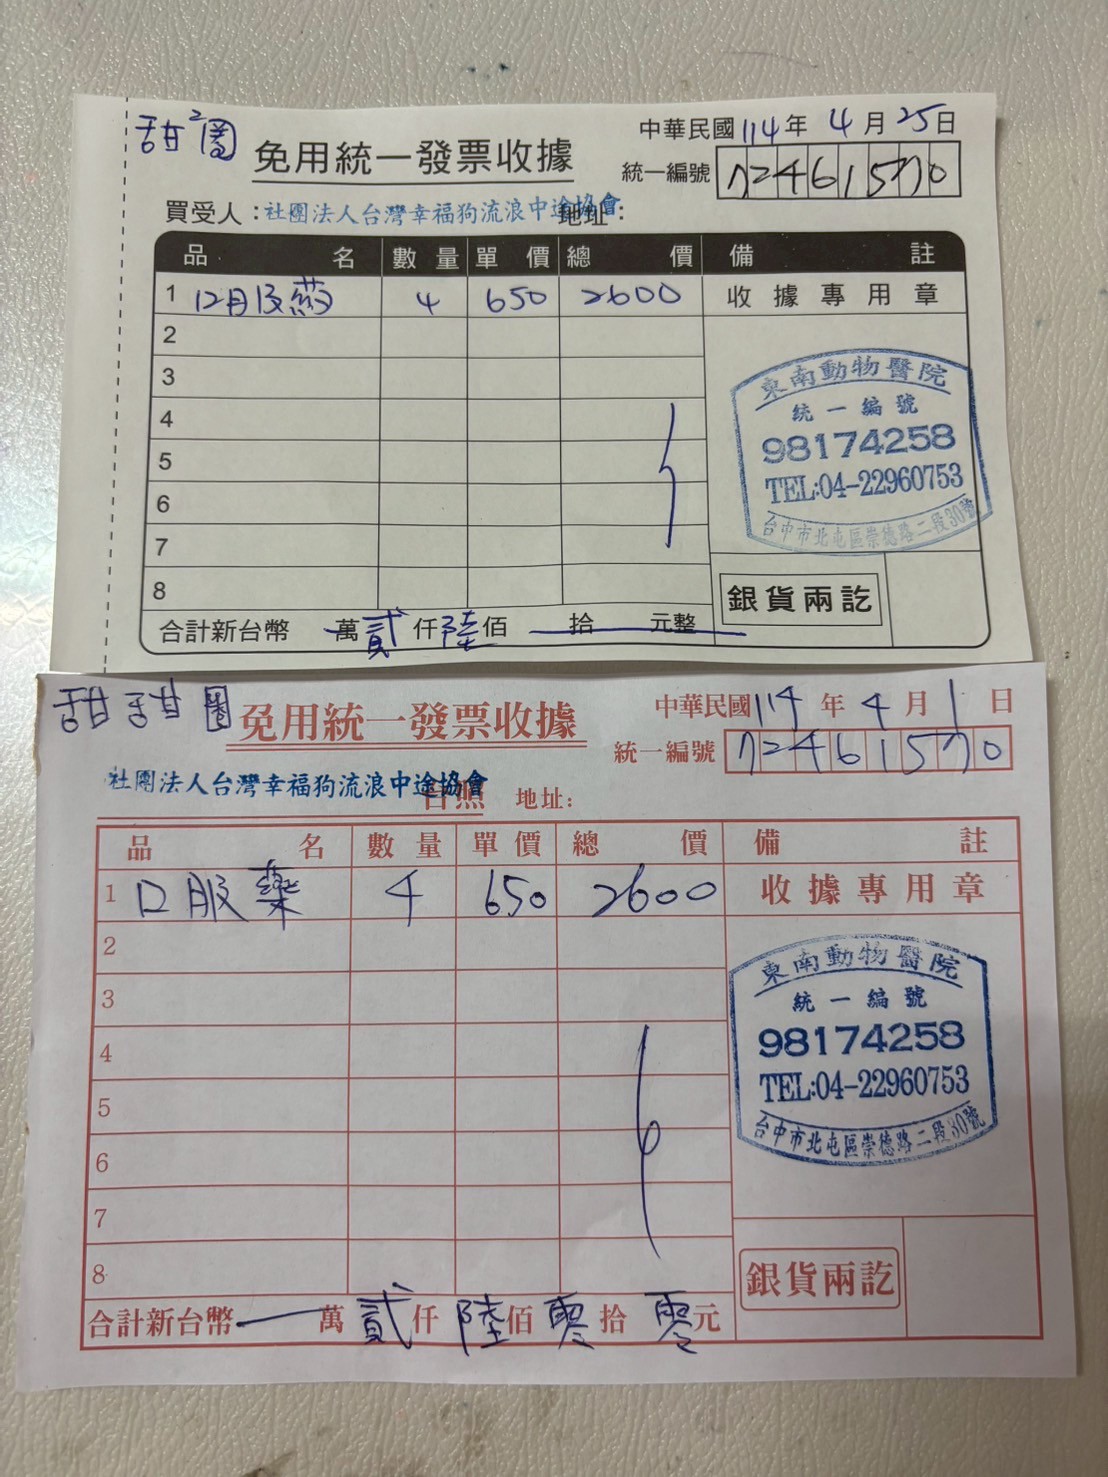 甜²圈
免用統一發票收據
中華民國114年4月25日
統一編號 72461570
買受人：社團法人台灣幸福狗流浪中途協會 地址：
品名 數量 單價 總價 備註
1 口服葯 4 650 2600 收據專用章
2
3
4
5
6
7
8
東南動物醫院
統一編號
98174258
TEL:04-22960753
台中市北屯區崇德路二段30號
銀貨兩訖
合計新台幣 萬貳仟陸佰 拾 元整
甜甜圈
免用統一發票收據
中華民國114年4月1日
統一編號 72461570
社團法人台灣幸福狗流浪中途協會 台照 地址:
品名 數量 單價 總價 備註
1 口服藥 4 650 2600 收據專用章
2
3
4
5
6
7
8
東南動物醫院
統一編號
98174258
TEL:04-22960753
台中市北屯區崇德路二段30號
銀貨兩訖
合計新台幣 萬貳仟陸佰零拾零元